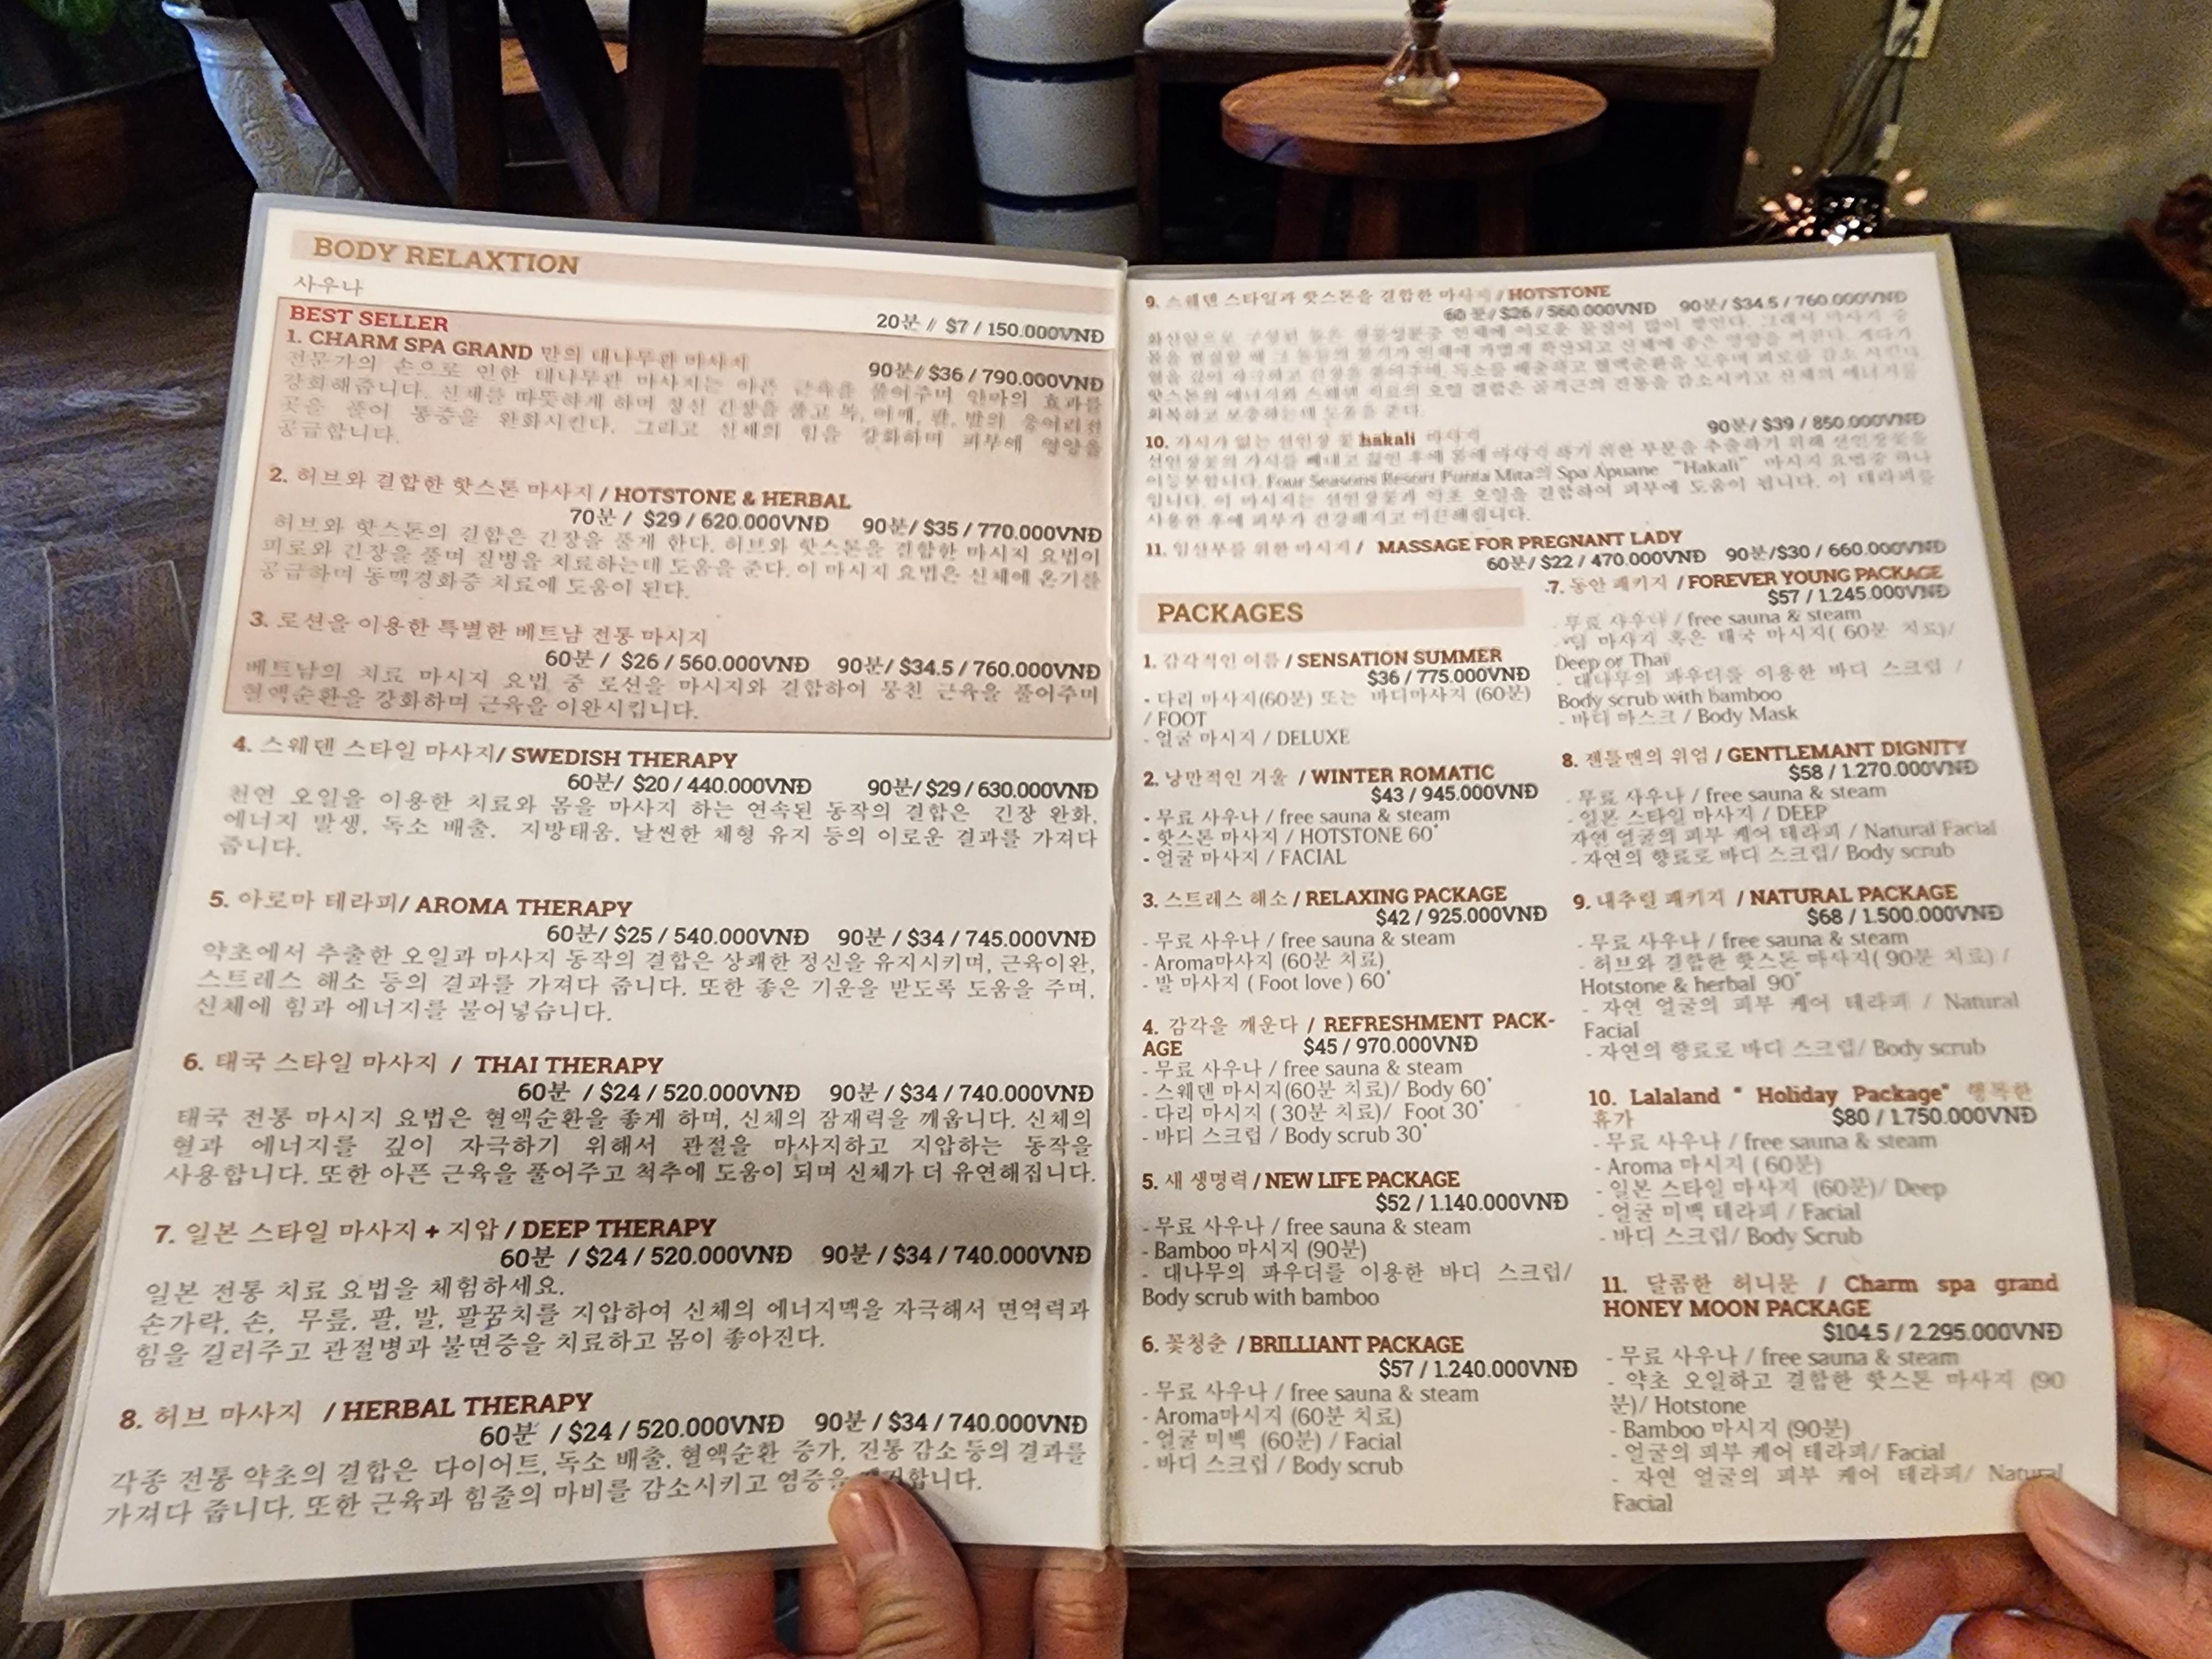 BODY RELAXTION
사우나
20분 // $7 / 150.000VNĐ
BEST SELLER
1. CHARM SPA GRAND 만의 대나무관 마사지
90분/ $36 / 790.000VNĐ
전문가의 손으로 인한 대나무관 마사지는 아픈 근육을 풀어주며 안마의 효과를
강화해줍니다. 신체를 따뜻하게 하며 정신 긴장을 풀고 목, 어깨, 팔, 발의 응어리진
곳을 풀어 통증을 완화시킨다. 그리고 신체의 힘을 강화하며 피부에 영양을
공급합니다.
2. 허브와 결합한 핫스톤 마사지 / HOTSTONE & HERBAL
70분 / $29 / 620.000VNĐ 90분/ $35 / 770.000VNĐ
허브와 핫스톤의 결합은 긴장을 풀게 한다. 허브와 핫스톤을 결합한 마시지 요법이
피로와 긴장을 풀며 질병을 치료하는데 도움을 준다. 이 마시지 요법은 신체에 온기를
공급하며 동맥경화증 치료에 도움이 된다.
3. 로션을 이용한 특별한 베트남 전통 마시지
60분 / $26 / 560.000VNĐ 90분/ $34.5 / 760.000VNĐ
베트남의 치료 마시지 요법 중 로션을 마시지와 결합하여 뭉친 근육을 풀어주며
혈액순환을 강화하며 근육을 이완시킵니다.
4. 스웨덴 스타일 마사지/ SWEDISH THERAPY
60분/ $20 / 440.000VNĐ 90분/ $29 / 630.000VNĐ
천연 오일을 이용한 치료와 몸을 마사지 하는 연속된 동작의 결합은 긴장 완화,
에너지 발생, 독소 배출, 지방태움, 날씬한 체형 유지 등의 이로운 결과를 가져다
줍니다.
5. 아로마 테라피/ AROMA THERAPY
60분/ $25 / 540.000VNĐ 90분 / $34 / 745.000VNĐ
약초에서 추출한 오일과 마사지 동작의 결합은 상쾌한 정신을 유지시키며, 근육이완,
스트레스 해소 등의 결과를 가져다 줍니다. 또한 좋은 기운을 받도록 도움을 주며,
신체에 힘과 에너지를 불어넣습니다.
6. 태국 스타일 마사지 / THAI THERAPY
60분 / $24 / 520.000VNĐ 90분 / $34 / 740.000VNĐ
태국 전통 마시지 요법은 혈액순환을 좋게 하며, 신체의 잠재력을 깨웁니다. 신체의
혈과 에너지를 깊이 자극하기 위해서 관절을 마사지하고 지압하는 동작을
사용합니다. 또한 아픈 근육을 풀어주고 척추에 도움이 되며 신체가 더 유연해집니다.
7. 일본 스타일 마사지 + 지압 / DEEP THERAPY
60분 / $24 / 520.000VNĐ 90분 / $34 / 740.000VNĐ
일본 전통 치료 요법을 체험하세요.
손가락, 손, 무릎, 팔, 발, 팔꿈치를 지압하여 신체의 에너지맥을 자극해서 면역력과
힘을 길러주고 관절병과 불면증을 치료하고 몸이 좋아진다.
8. 허브 마사지 / HERBAL THERAPY
60분 / $24 / 520.000VNĐ 90분 / $34 / 740.000VNĐ
각종 전통 약초의 결합은 다이어트, 독소 배출, 혈액순환 증가, 진통 감소 등의 결과를
가져다 줍니다. 또한 근육과 힘줄의 마비를 감소시키고 염증을
9. 스웨덴 스타일과 핫스톤을 결합한 마시지 / HOTSTONE
60 분/ $26 / 560.000VNĐ 90분/ $34.5 / 760.000VNĐ
핫스톤의 에너지와 스웨덴 치료의 오일 결합은 골격근의 진통을 감소시키고 신체의 에너지를
회복하고 보충하는데 도움을 준다.
90분/ $39 / 850.000VNĐ
10. 가시가 없는 선인장 꽃 hakali 마사지
선인장꽃의 가시를 빼내고 끓인 후에 몸에 마사지 하기 위한 부분을 추출하기 위해 선인장꽃을
Four Seasons Resort Punta Mita의 Spa Apuane "Hakali" 마시지 요법중 하나
입니다. 이 마시지는 선인장꽃과 약초 오일을 결합하여 피부에 도움이 됩니다. 이 테라피를
사용한 후에 피부가 건강해지고
11. 임산부를 위한 마시지 / MASSAGE FOR PREGNANT LADY
60분/ $22 / 470.000VNĐ 90분/$30 / 660.000VNĐ
PACKAGES
1. 감각적인 여름 / SENSATION SUMMER
$36 / 775.000VNĐ
- 다리 마사지(60분) 또는 바디마사지 (60분)
/ FOOT
- 얼굴 마시지 / DELUXE
2. 낭만적인 겨울 / WINTER ROMATIC
$43 / 945.000VNĐ
- 무료 사우나 / free sauna & steam
- 핫스톤 마사지 / HOTSTONE 60'
- 얼굴 마사지 / FACIAL
3. 스트레스 해소 / RELAXING PACKAGE
$42 / 925.000VNĐ
- 무료 사우나 / free sauna & steam
- Aroma마사지 (60분 치료)
- 발 마사지 ( Foot love ) 60'
4. 감각을 깨운다 / REFRESHMENT PACK-
AGE $45 / 970.000VNĐ
- 무료 사우나 / free sauna & steam
- 스웨덴 마시지(60분 치료)/ Body 60'
- 다리 마시지 ( 30분 치료)/ Foot 30'
- 바디 스크럽 / Body scrub 30'
5. 새 생명력 / NEW LIFE PACKAGE
$52 / 1.140.000VNĐ
- 무료 사우나 / free sauna & steam
- Bamboo 마시지 (90분)
- 대나무의 파우더를 이용한 바디 스크럽/
Body scrub with bamboo
6. 꽃청춘 / BRILLIANT PACKAGE
$57 / 1.240.000VNĐ
- 무료 사우나 / free sauna & steam
- Aroma마시지 (60분 치료)
- 얼굴 미백 (60분) / Facial
- 바디 스크럽 / Body scrub
7. 동안 패키지 / FOREVER YOUNG PACKAGE
$57 / 1.245.000VNĐ
- 무료 사우나 / free sauna & steam
- 딥 마사지 혹은 태국 마시지( 60분 치료)/
Deep or Thai
- 대나무의 파우더를 이용한 바디 스크럽 /
Body scrub with bamboo
- 바디 마스크 / Body Mask
8. 젠틀맨의 위엄 / GENTLEMANT DIGNITY
$58 / 1.270.000VNĐ
- 무료 사우나 / free sauna & steam
- 일본 스타일 마사지 / DEEP
자연 얼굴의 피부 케어 테라피 / Natural Facial
- 자연의 향료로 바디 스크럽/ Body scrub
9. 내추럴 패키지 / NATURAL PACKAGE
$68 / 1.500.000VNĐ
- 무료 사우나 / free sauna & steam
- 허브와 결합한 핫스톤 마사지( 90분 치료) /
Hotstone & herbal 90'
- 자연 얼굴의 피부 케어 테라피 / Natural
Facial
- 자연의 향료로 바디 스크럽/ Body scrub
10. Lalaland " Holiday Package" 행복한
휴가 $80 / 1.750.000VNĐ
- 무료 사우나 / free sauna & steam
- Aroma 마시지 ( 60분)
- 일본 스타일 마사지 (60분)/ Deep
- 얼굴 미백 테라피 / Facial
- 바디 스크럽/ Body Scrub
11. 달콤한 허니문 / Charm spa grand
HONEY MOON PACKAGE
$104.5 / 2.295.000VNĐ
- 무료 사우나 / free sauna & steam
- 약초 오일하고 결합한 핫스톤 마사지 (90
분)/ Hotstone
- Bamboo 마시지 (90분)
- 얼굴의 피부 케어 테라피/ Facial
- 자연 얼굴의 피부 케어 테라피/ Natural
Facial